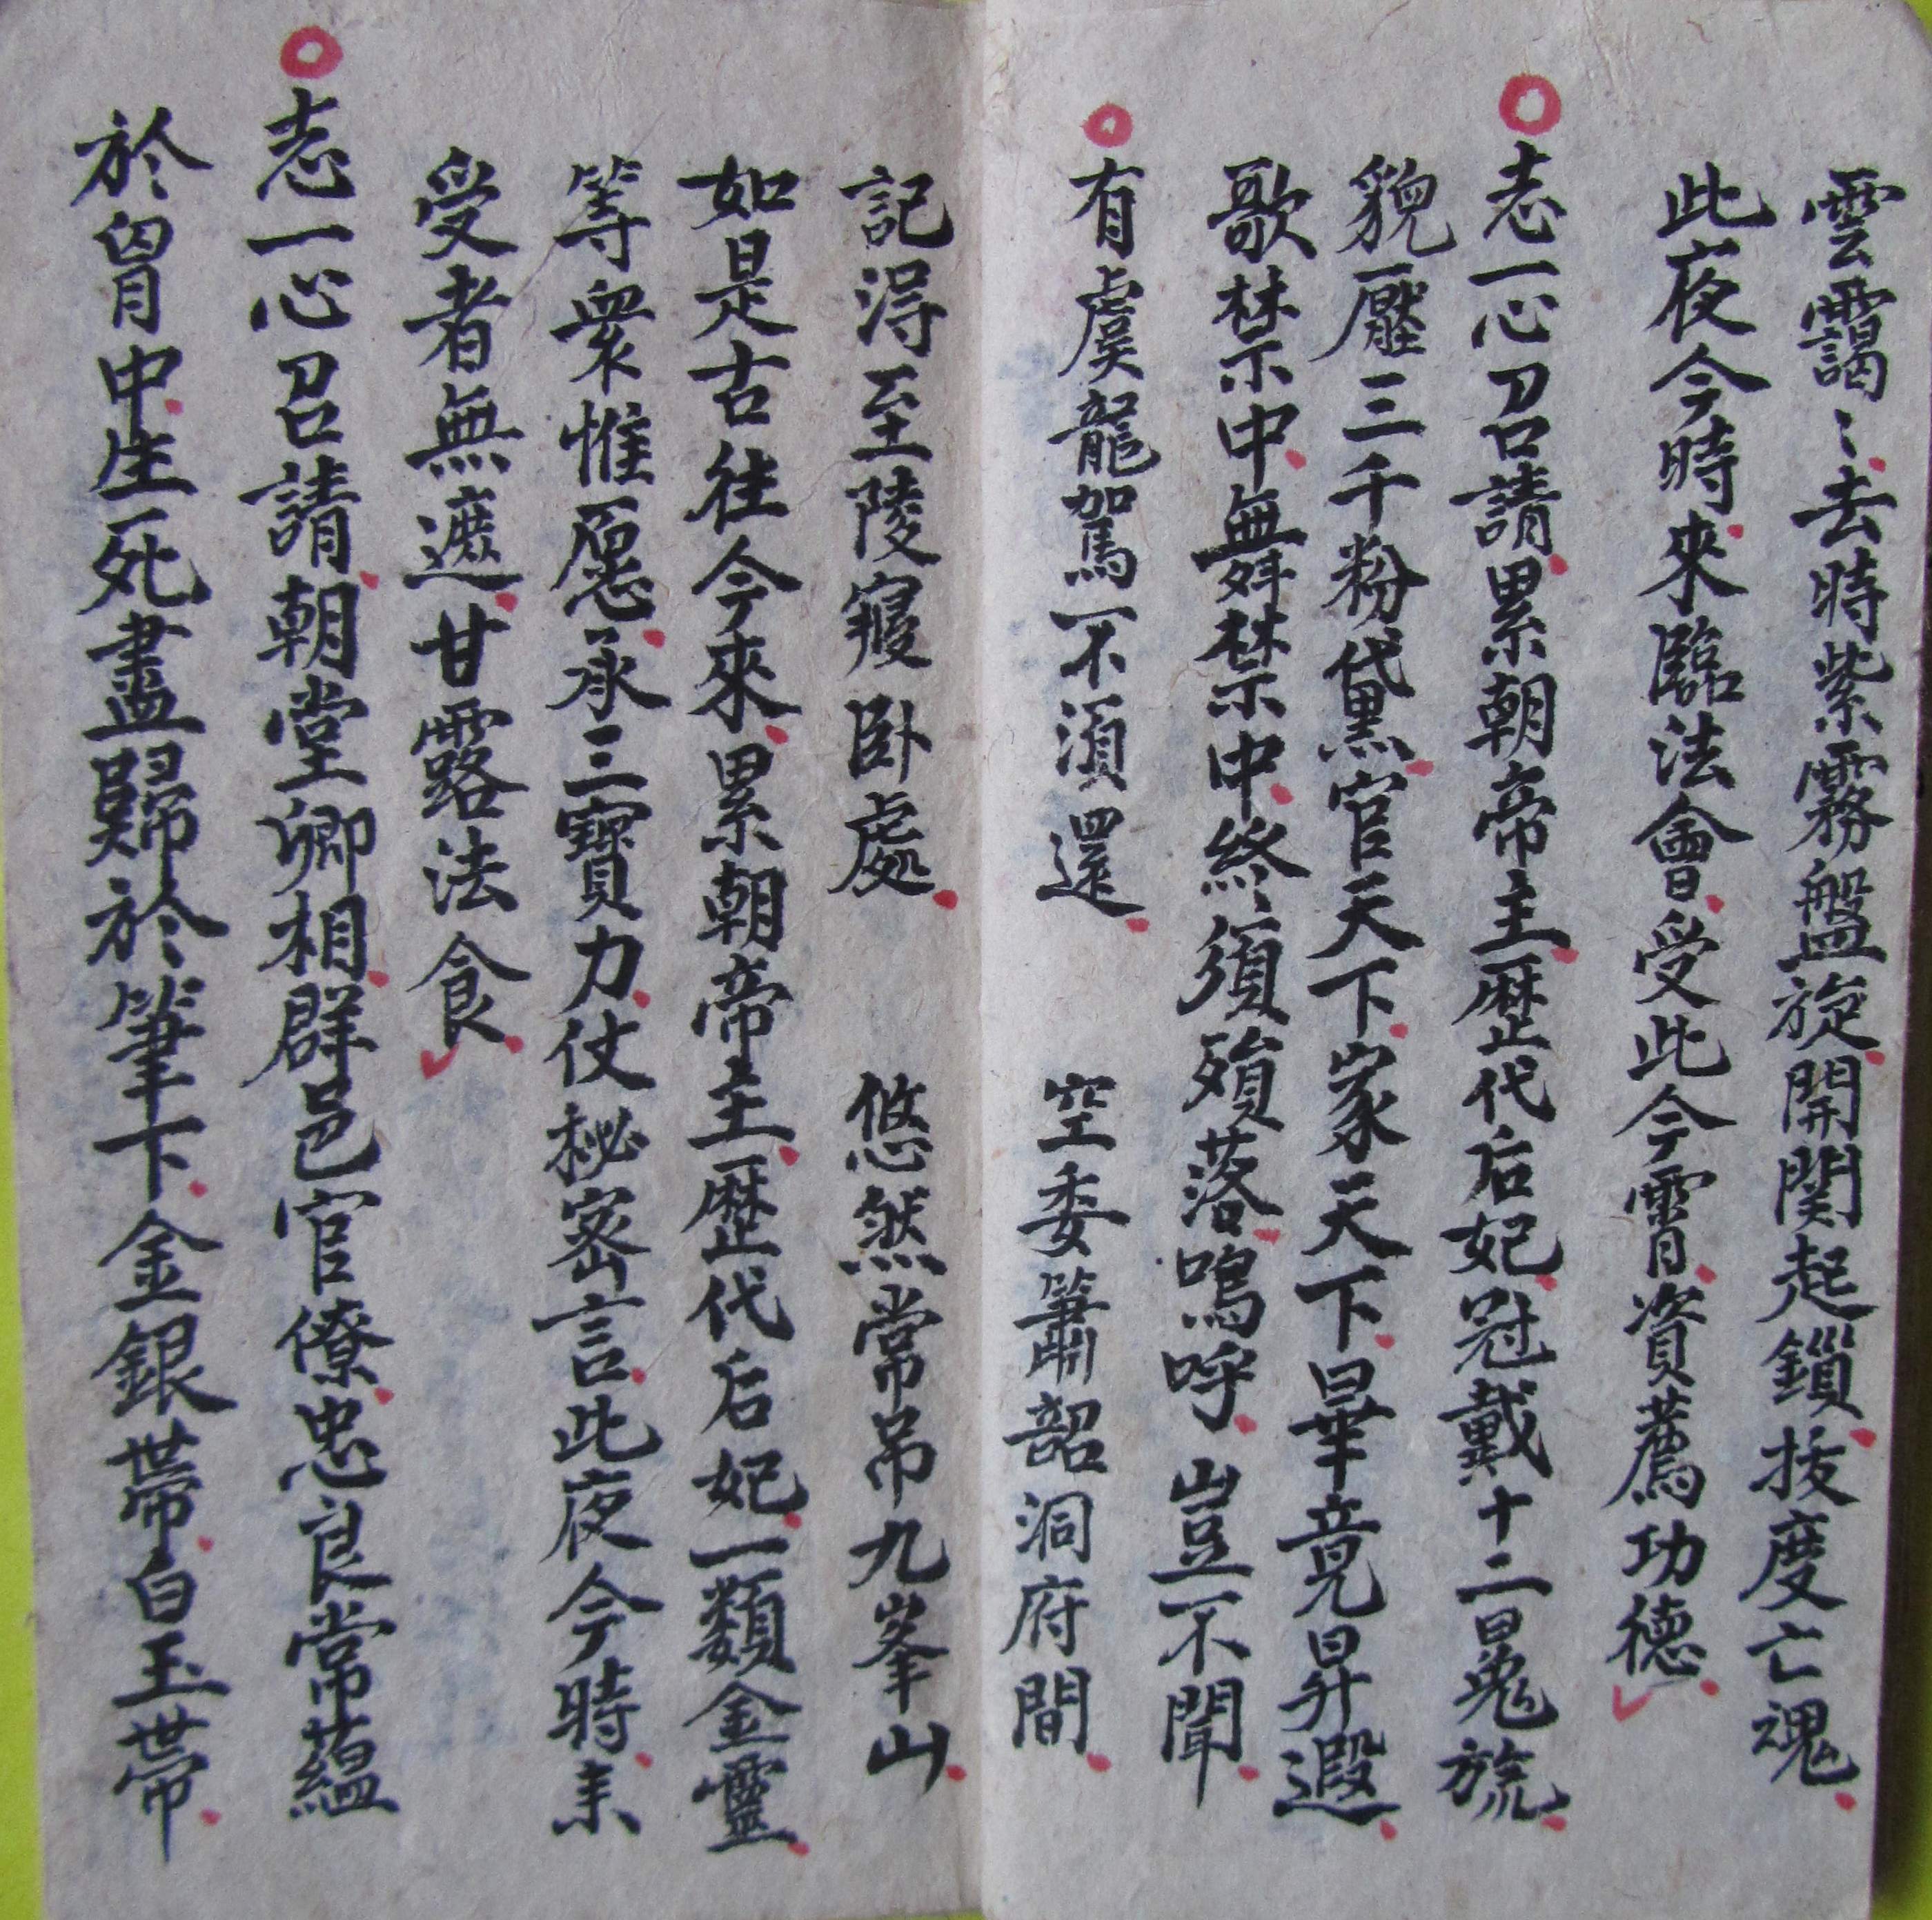 雲靄〻去時紫霧盤旋開関起鎖拔度亡魂
此夜今時來臨法會受此今霄資薦功德
志一心召請累朝帝主歷代后妃冠戴十二冕旒
貌壓三千粉黛黑官天下家天下畢竟昇遐
歌禁中舞禁中終須殞落嗚呼豈不聞
有虞龍駕不須還 空委簫韶洞府間
記淂至陵寢卧處 悠然常吊九峯山
如是古往今來累朝帝主歷代后妃一類金靈
等衆惟愿承三寶力仗秘密言此夜今時来
受者無遮甘露法食
志一心召請朝堂卿相群邑官僚忠良常蘊
於胷中生死盡歸於筆下金銀帶白玉帶